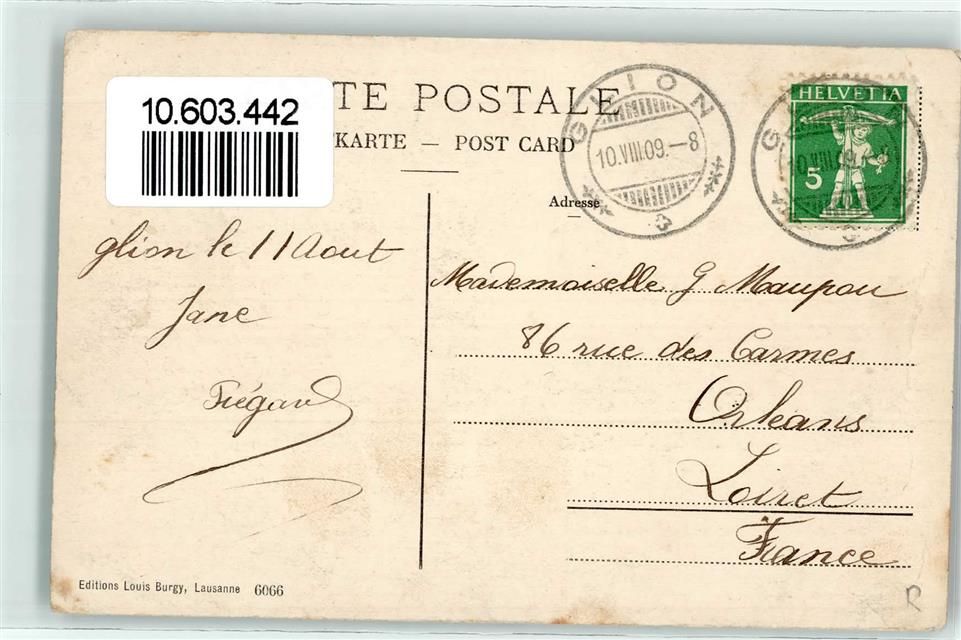 10.603.442
TE POSTALE
KARTE — POST CARD
GLION
10.VIII.09.–8
HELVETIA
5
GLION
10.VIII.09.
Adresse
glion le 11 Aout
Jane
Mademoiselle G Maupou
86 rue des Carmes
Orleans
Loiret
France
Editions Louis Burgy, Lausanne 6066
R